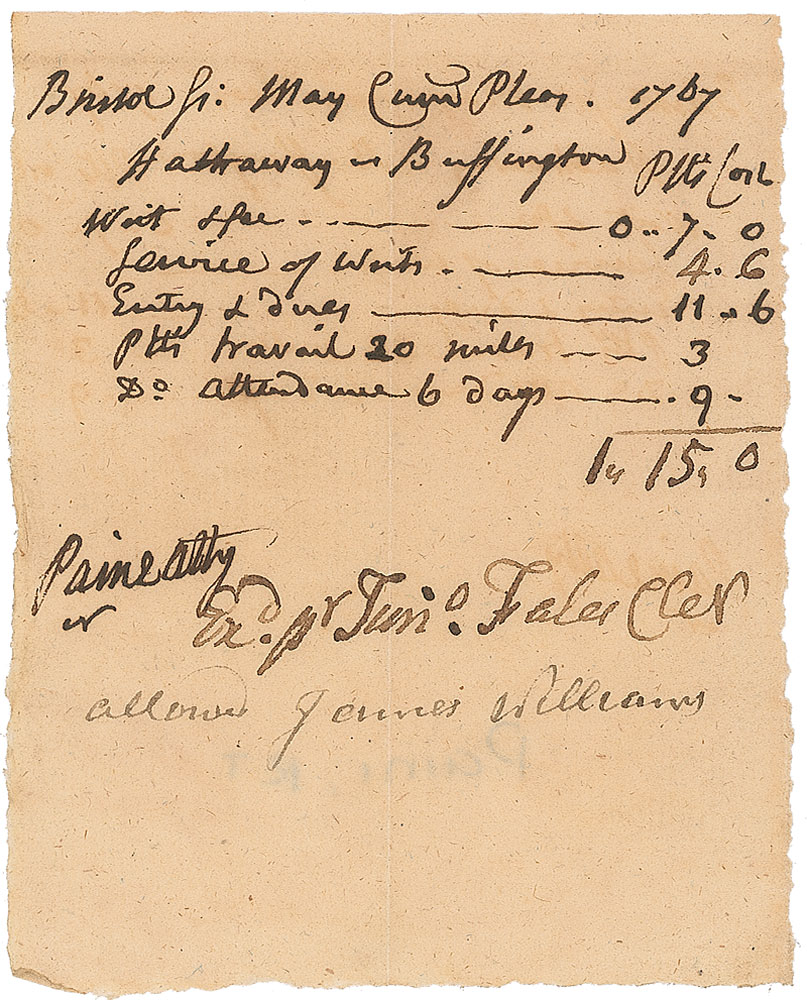 Bristol Ss: May Com̄ Pleas. 1767
Hathaway vs Buffington Pltfs Cost
Writ & fee - - 0 .. 7 - 0
Service of Writs - 4 - 6
Entry & dues 11 .. 6
Pltfs travail 20 miles - 3
Do attendance 6 days - 9 -
1 „ 15 „ 0
Paine Atty
Exd. pr Timo. Fales Cler
allowd James Williams